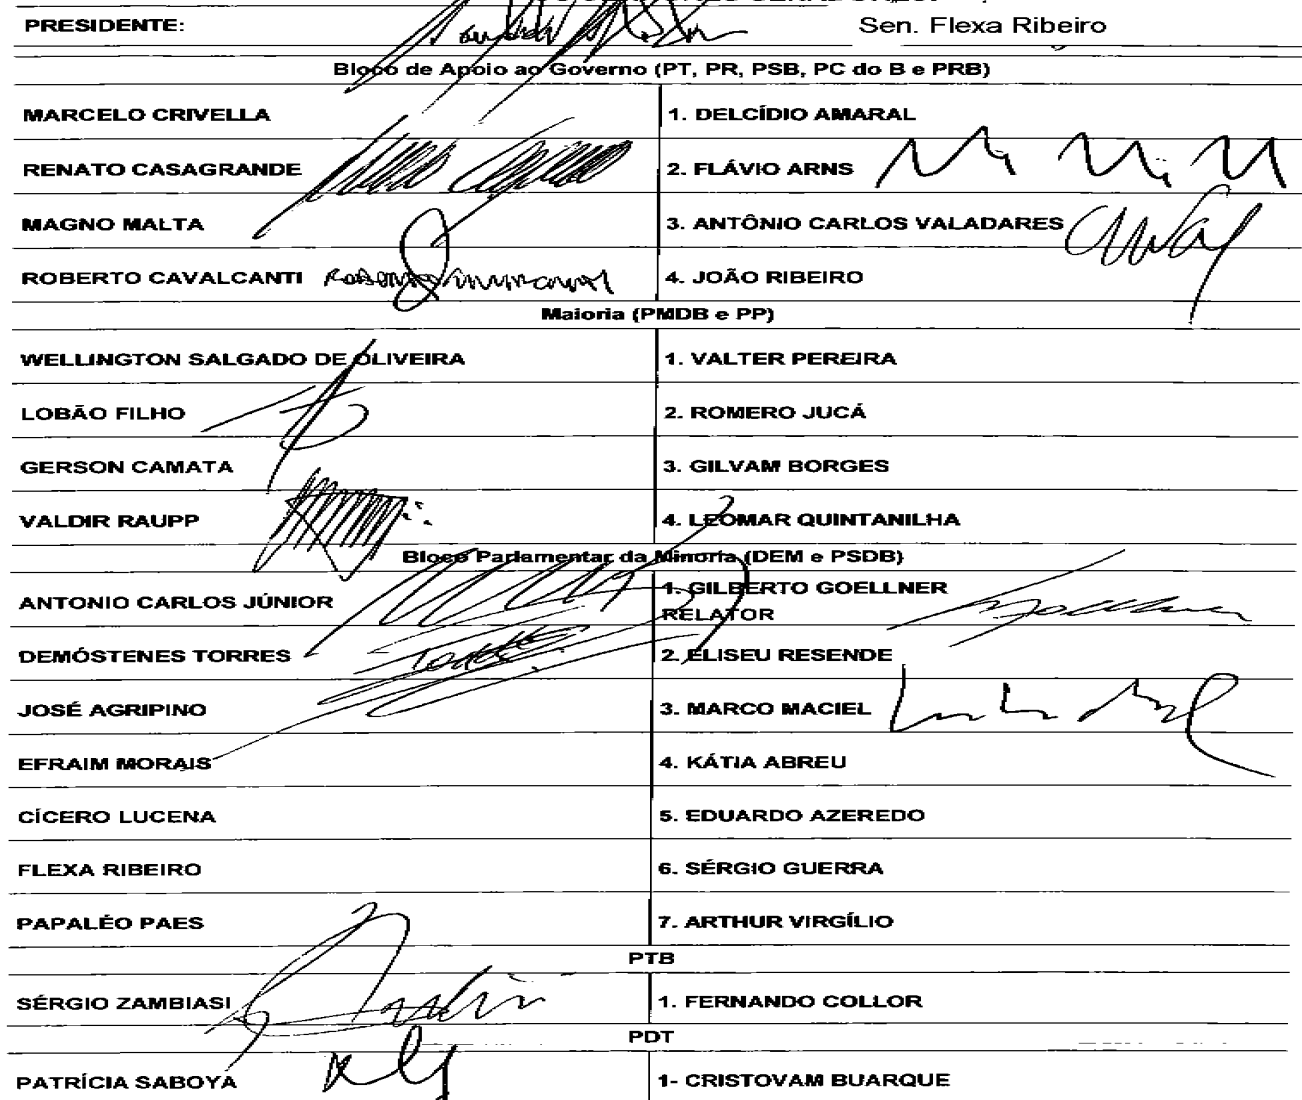 PRESIDENTE: Sen. Flexa Ribeiro
Bloco de Apoio ao Governo (PT, PR, PSB, PC do B e PRB)
MARCELO CRIVELLA 1. DELCÍDIO AMARAL
RENATO CASAGRANDE 2. FLÁVIO ARNS
MAGNO MALTA 3. ANTÔNIO CARLOS VALADARES
ROBERTO CAVALCANTI 4. JOÃO RIBEIRO
Maioria (PMDB e PP)
WELLINGTON SALGADO DE OLIVEIRA 1. VALTER PEREIRA
LOBÃO FILHO 2. ROMERO JUCÁ
GERSON CAMATA 3. GILVAM BORGES
VALDIR RAUPP 4. LEOMAR QUINTANILHA
Bloco Parlamentar da Minoria (DEM e PSDB)
ANTONIO CARLOS JÚNIOR 1. GILBERTO GOELLNER
RELATOR
DEMÓSTENES TORRES 2. ELISEU RESENDE
JOSÉ AGRIPINO 3. MARCO MACIEL
EFRAIM MORAIS 4. KÁTIA ABREU
CÍCERO LUCENA 5. EDUARDO AZEREDO
FLEXA RIBEIRO 6. SÉRGIO GUERRA
PAPALÉO PAES 7. ARTHUR VIRGÍLIO
PTB
SÉRGIO ZAMBIASI 1. FERNANDO COLLOR
PDT
PATRÍCIA SABOYA 1- CRISTOVAM BUARQUE